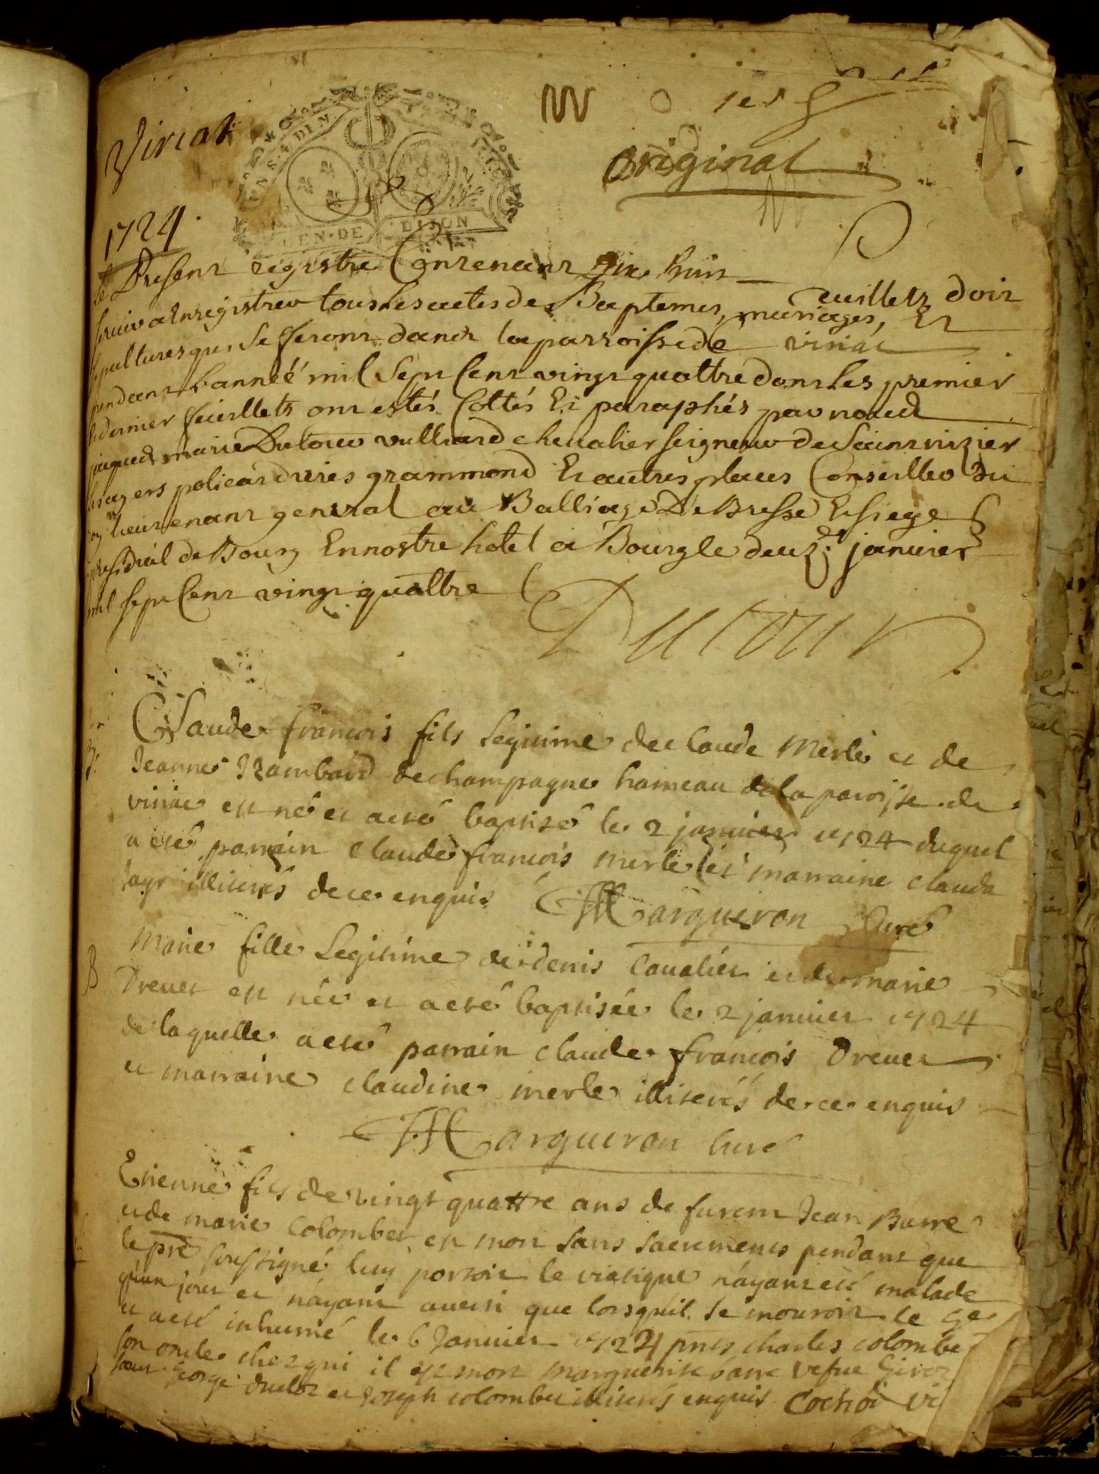 Viriat
Original
GEN·DE DIJON
1724
le Present registre Contenant dix huit
feuillets doit
servir a Enregistrer tous les actes de Baptemes, mariages, Et
sepultures qui se feront dans la parroisse de viriat
pendant l'année mil sept Cent vingt quattre dont les premier
& dernier feuillets ont estés Cottés Et paraphés par nous
jaques marie Dutour vulliard chevalier seigneur de Saint
policard grammond Et autres places Conseiller du
Roy lieutenant general au Balliage De Bresse Et siege
presidial de Bourg En nostre hotel a Bourg le deuz.e janvier
mil sept Cent vingt quattre
Dutour
Claude francois fils legitime de claude Merle et de
Jeanne Rambaud de champagne hameau de la paroisse de
viriat est né et a eté baptisé le 2 janvier 1724 duquel
a eté parrain claude francois merle et marraine clauda
illiterés de ce enquis Margueron Curé
B
Marie fille Legitime de denis Cavalier et de marie
Drevet est née et a eté baptisée le 2 janvier 1724
de laquelle a eté parrain claude francois Drevet
et marraine claudine merle illiterés de ce enquis
Margueron Curé
Etienne fils de vingt quattre ans de furent Jean Barre
et de marie Colombet est mort sans sacrements pendant que
le pre soussigné luy portoit le viatique n'ayant eté malade
qu'un jour et n'ayant averti que lorsquil se mouroit le 5e
et a eté inhumé le 6 Janvier 1724 pnts charles colombet
son oncle chez qui il est mort marguerite barre vefue
george duclos et Joseph colombet illiterés enquis Cochod vi